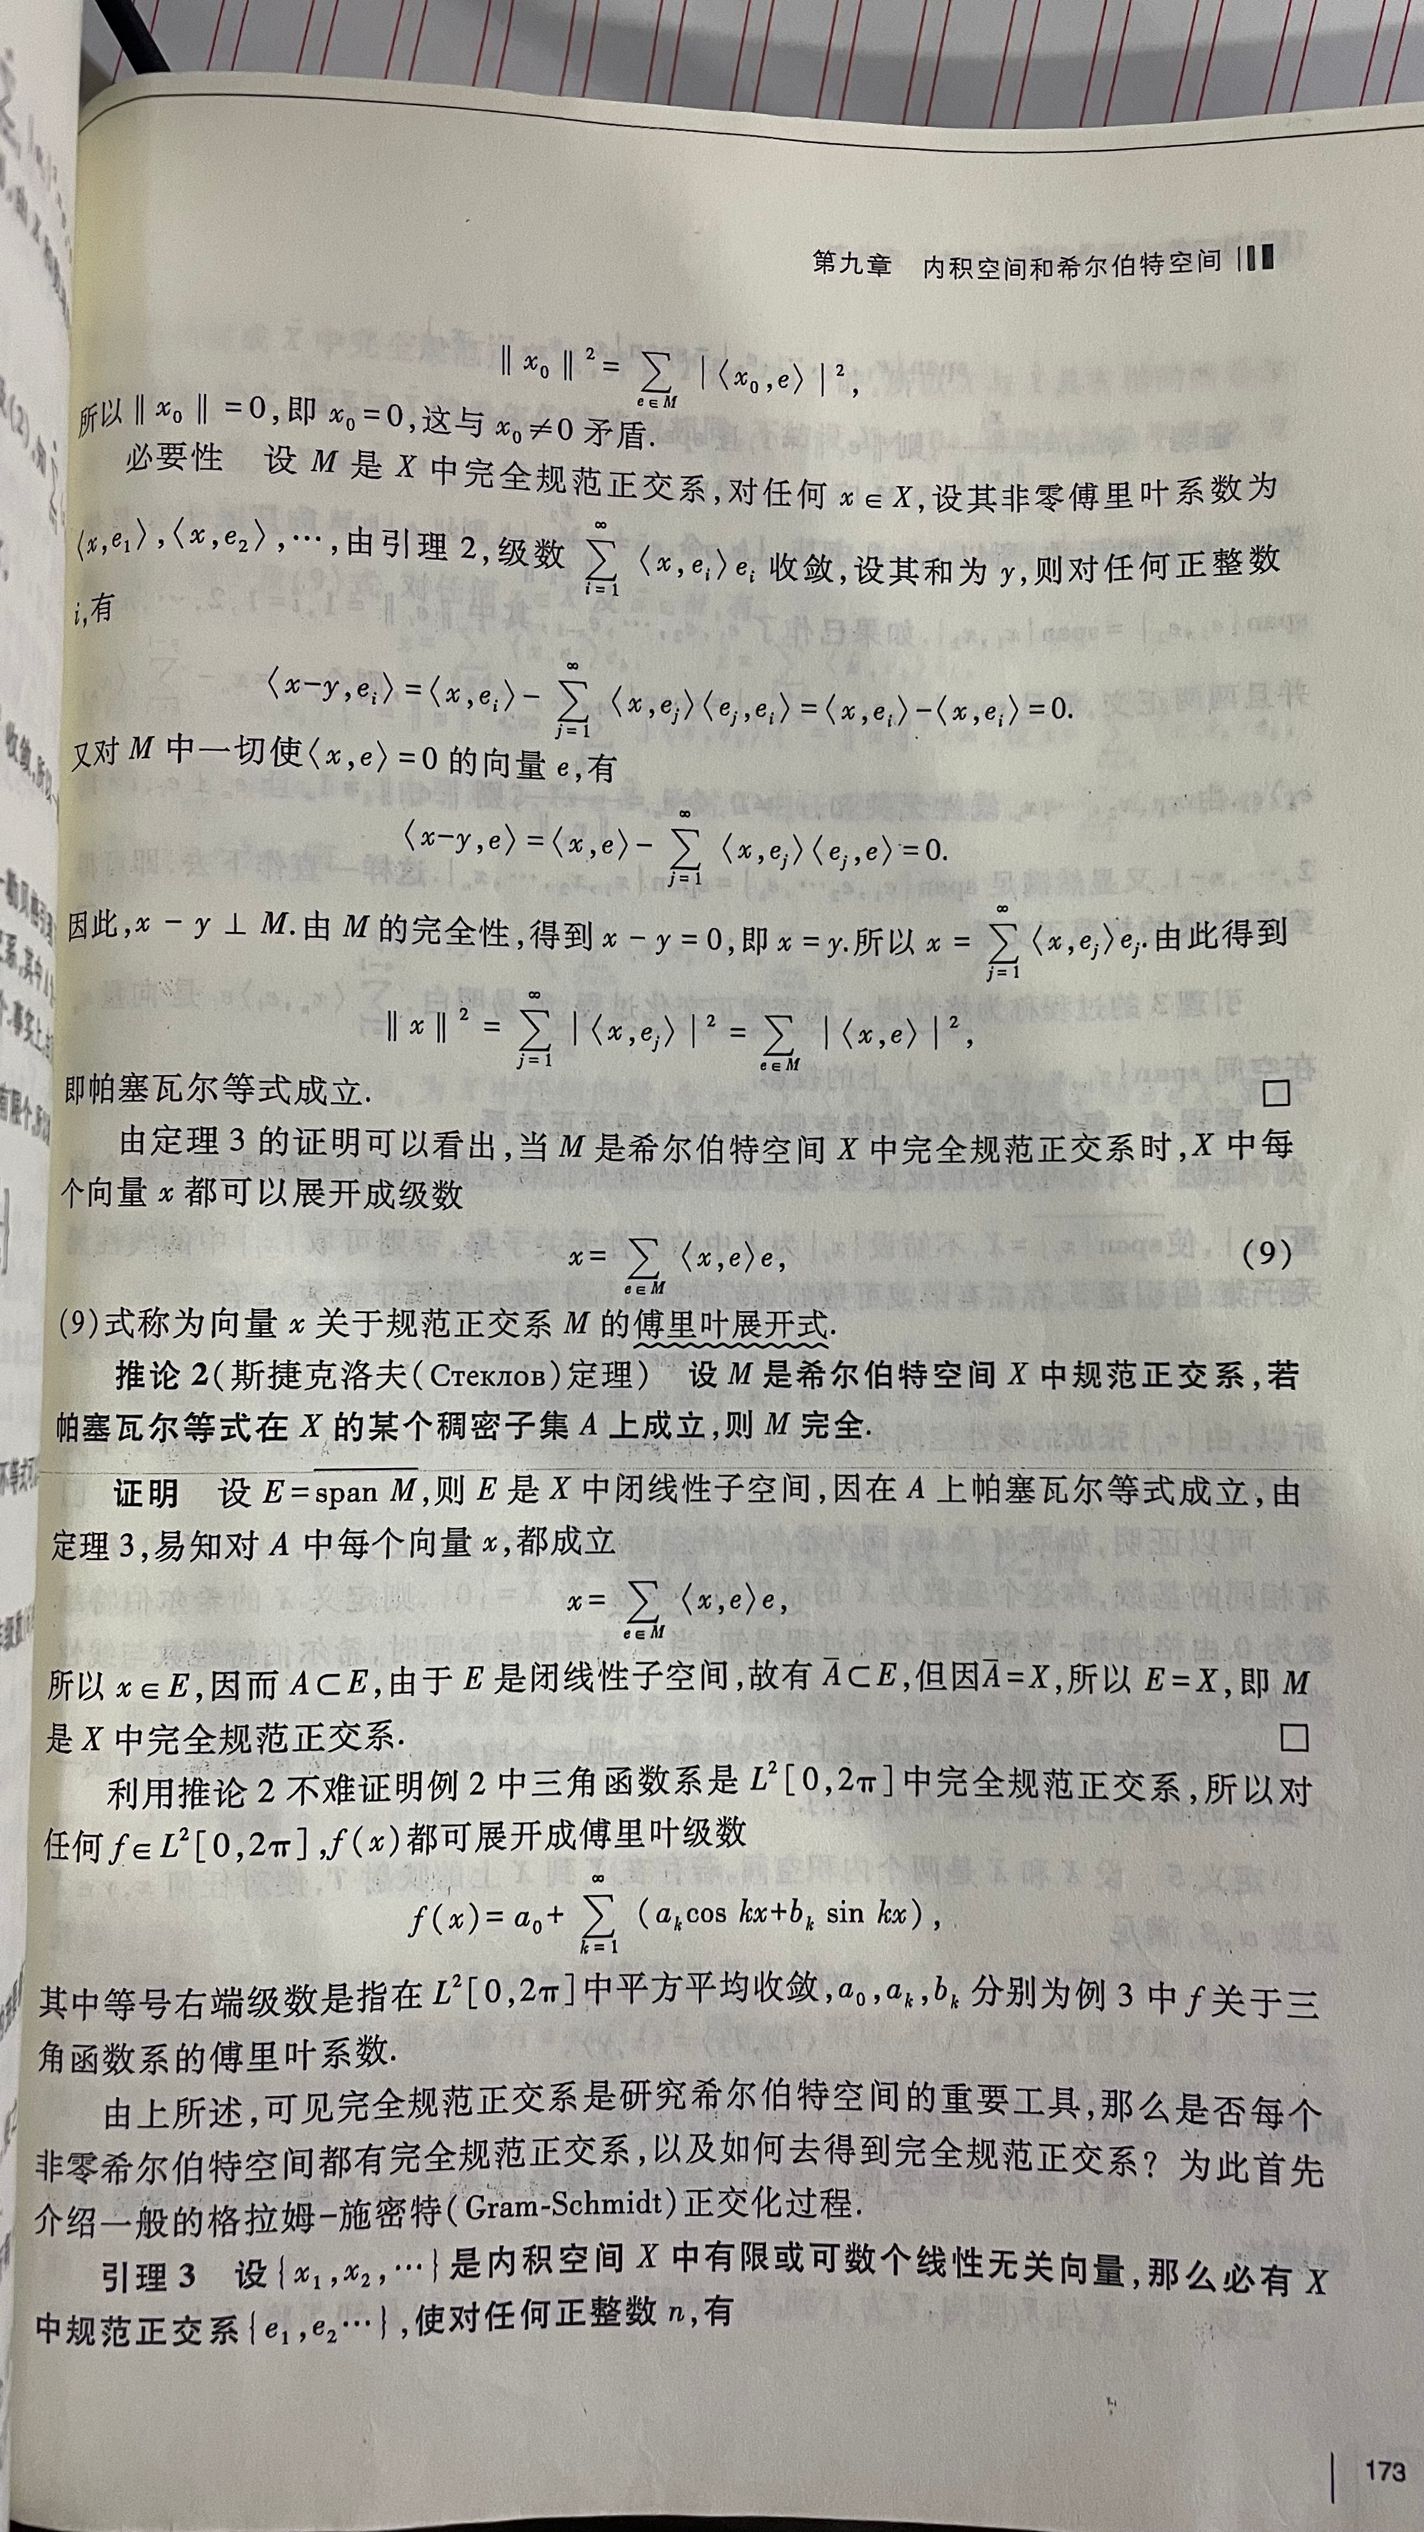 第九章 内积空间和希尔伯特空间
‖x₀‖² = ∑_{e∈M} |⟨x₀,e⟩|²,
所以‖x₀‖=0,即 x₀=0,这与 x₀≠0 矛盾.
必要性 设 M 是 X 中完全规范正交系,对任何 x∈X,设其非零傅里叶系数为
⟨x,e₁⟩,⟨x,e₂⟩,⋯,由引理 2,级数 ∑_{i=1}^{∞} ⟨x,eᵢ⟩eᵢ 收敛,设其和为 y,则对任何正整数
i,有
⟨x−y,eᵢ⟩=⟨x,eᵢ⟩− ∑_{j=1}^{∞} ⟨x,eⱼ⟩⟨eⱼ,eᵢ⟩=⟨x,eᵢ⟩−⟨x,eᵢ⟩=0.
又对 M 中一切使⟨x,e⟩=0 的向量 e,有
⟨x−y,e⟩=⟨x,e⟩− ∑_{j=1}^{∞} ⟨x,eⱼ⟩⟨eⱼ,e⟩=0.
因此,x − y ⊥ M.由 M 的完全性,得到 x − y = 0,即 x = y.所以 x = ∑_{j=1}^{∞} ⟨x,eⱼ⟩eⱼ.由此得到
‖x‖² = ∑_{j=1}^{∞} |⟨x,eⱼ⟩|² = ∑_{e∈M} |⟨x,e⟩|²,
即帕塞瓦尔等式成立. □
由定理 3 的证明可以看出,当 M 是希尔伯特空间 X 中完全规范正交系时,X 中每
个向量 x 都可以展开成级数
x= ∑_{e∈M} ⟨x,e⟩e, (9)
(9)式称为向量 x 关于规范正交系 M 的傅里叶展开式.
推论 2(斯捷克洛夫(Стеклов)定理) 设 M 是希尔伯特空间 X 中规范正交系,若
帕塞瓦尔等式在 X 的某个稠密子集 A 上成立,则 M 完全.
证明 设 E=\overline{span M},则 E 是 X 中闭线性子空间,因在 A 上帕塞瓦尔等式成立,由
定理 3,易知对 A 中每个向量 x,都成立
x= ∑_{e∈M} ⟨x,e⟩e,
所以 x∈E,因而 A⊂E,由于 E 是闭线性子空间,故有 A̅⊂E,但因A̅=X,所以 E=X,即 M
是 X 中完全规范正交系. □
利用推论 2 不难证明例 2 中三角函数系是 L²[0,2π]中完全规范正交系,所以对
任何 f∈L²[0,2π],f(x)都可展开成傅里叶级数
f(x)= a₀+ ∑_{k=1}^{∞} (aₖcos kx+bₖ sin kx),
其中等号右端级数是指在 L²[0,2π]中平方平均收敛,a₀,aₖ,bₖ 分别为例 3 中 f 关于三
角函数系的傅里叶系数.
由上所述,可见完全规范正交系是研究希尔伯特空间的重要工具,那么是否每个
非零希尔伯特空间都有完全规范正交系,以及如何去得到完全规范正交系? 为此首先
介绍一般的格拉姆-施密特(Gram-Schmidt)正交化过程.
引理 3 设{x₁,x₂,⋯}是内积空间 X 中有限或可数个线性无关向量,那么必有 X
中规范正交系{e₁,e₂⋯},使对任何正整数 n,有
173